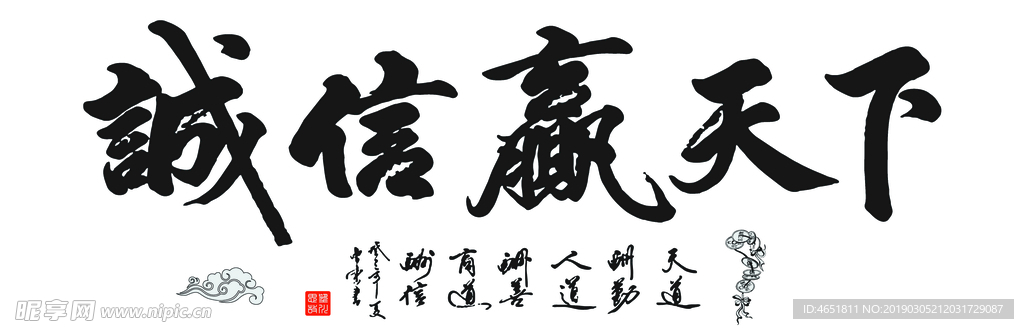 誠信贏天下
天道
酬勤
人道
酬善
商道
酬信
昵享网 www.nipic.cn
ID:4651811 NO:20190305212031729087